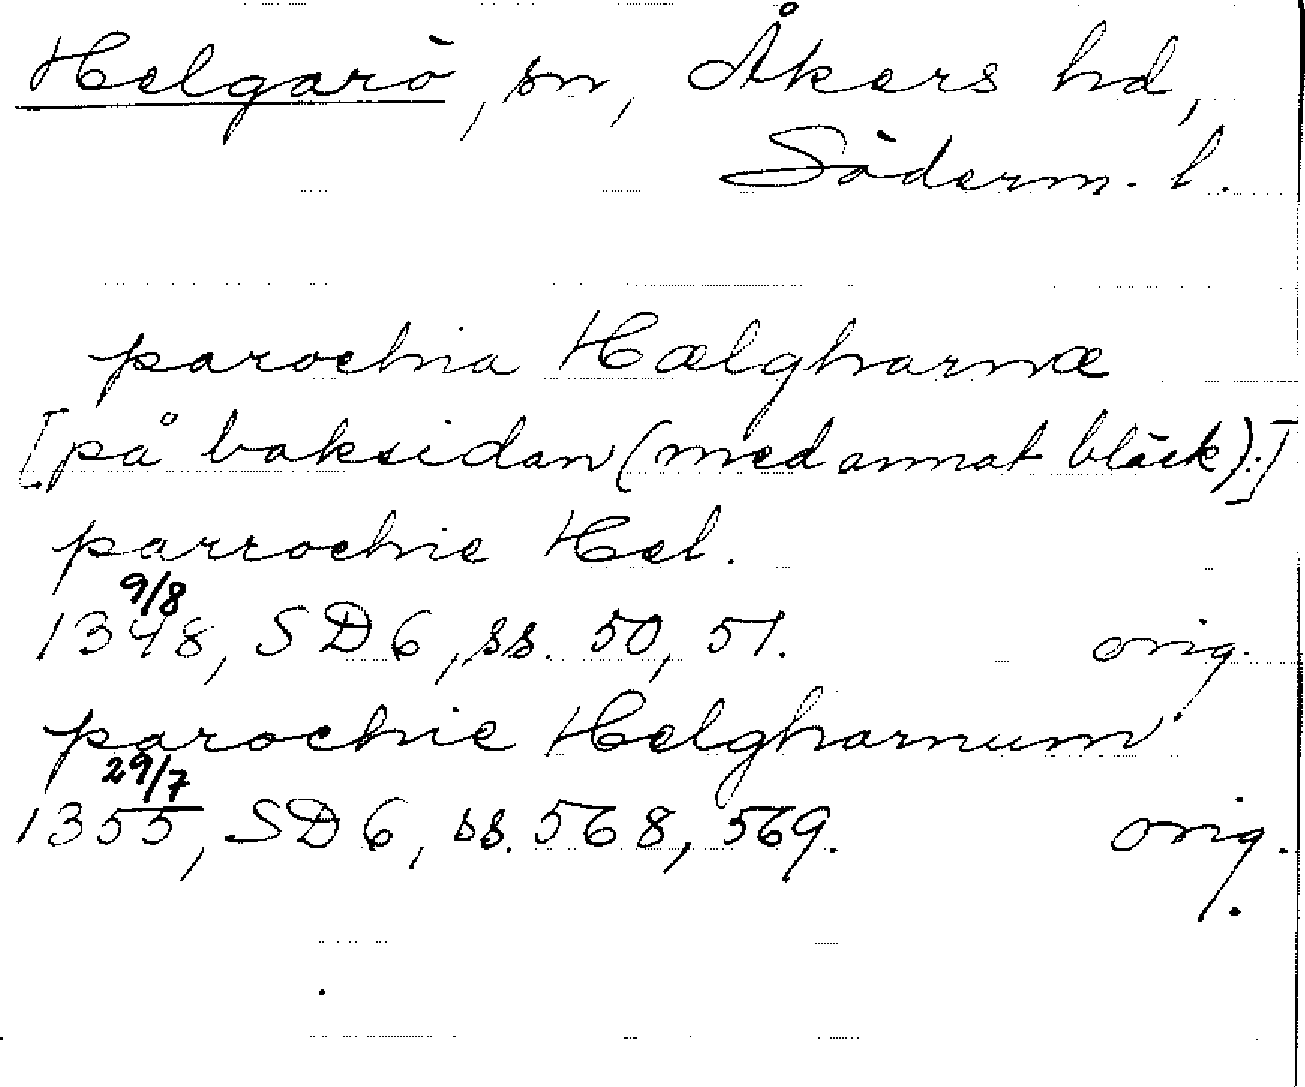 Helgarö, sn, Åkers hd,
Söderm. l.
parochia Hælgharnæ
[på baksidan (med annat bläck):]
parrochie Hæl.
9/8
1348, SD 6, ss. 50, 51. orig.
parochie Helgharnum
29/7
1355, SD 6, ss. 568, 569. orig.